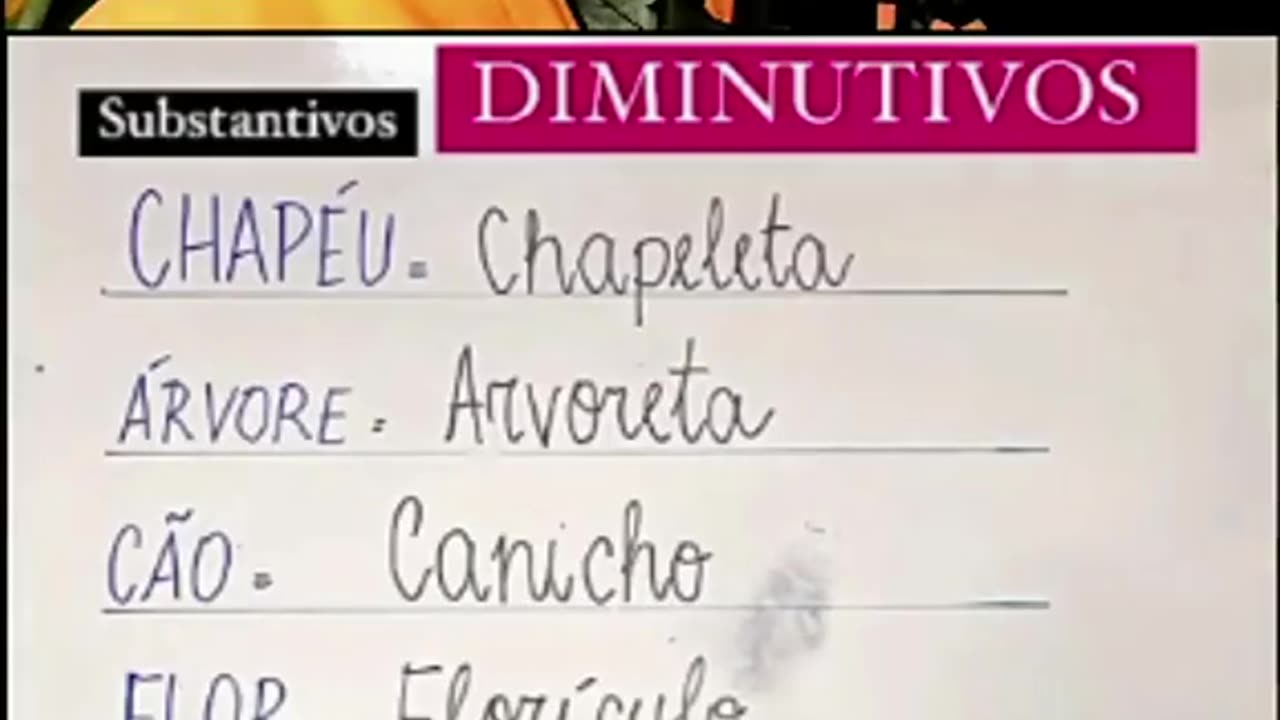 Substantivos DIMINUTIVOS
CHAPÉU = Chapeleta
ÁRVORE = Arvoreta
CÃO = Canicho
FLOR Florículo